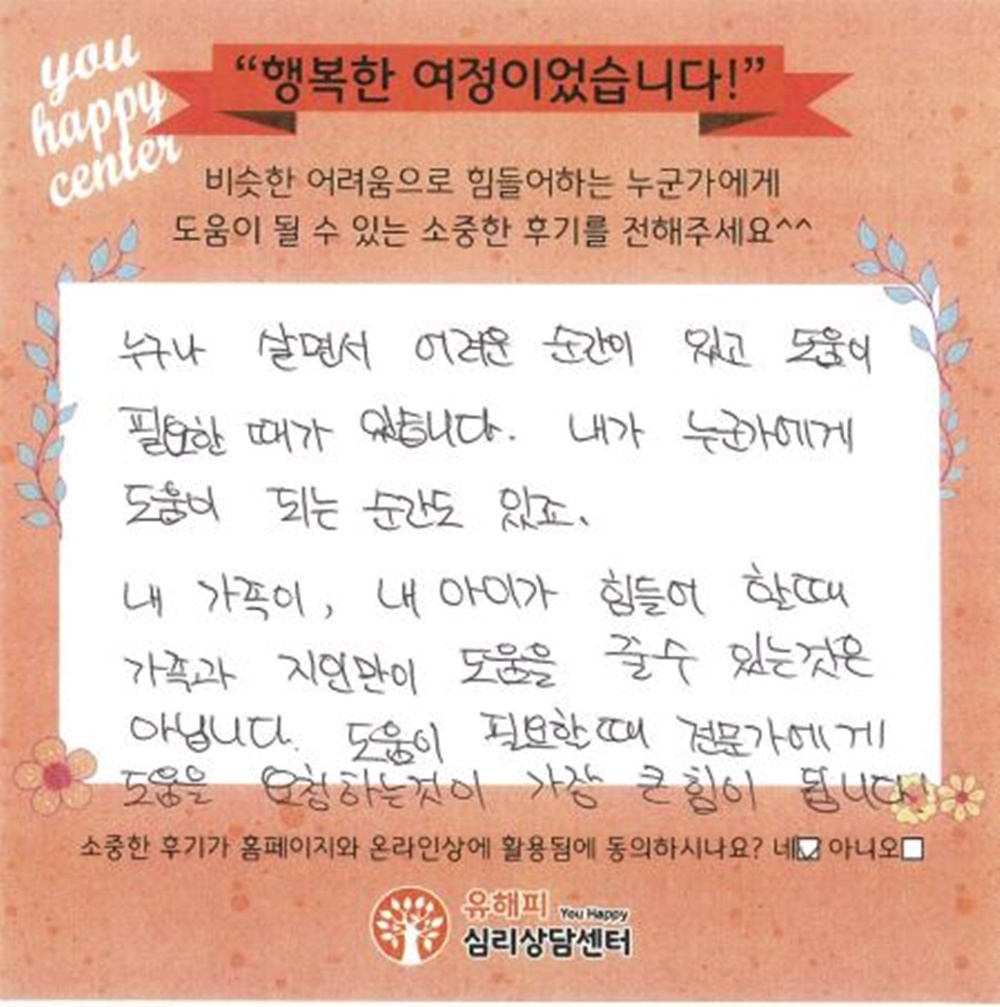 you
happy
center
“행복한 여정이었습니다!”
비슷한 어려움으로 힘들어하는 누군가에게
도움이 될 수 있는 소중한 후기를 전해주세요^^
누구나 살면서 어려운 순간이 있고 도움이
필요한 때가 있습니다. 내가 누군가에게
도움이 되는 순간도 있죠.
내 가족이, 내 아이가 힘들어 할때
가족과 지인만이 도움을 줄수 있는것은
아닙니다. 도움이 필요한때 전문가에게
도움을 요청하는것이 가장 큰 힘이 됩니다.
소중한 후기가 홈페이지와 온라인상에 활용됨에 동의하시나요? 네☑ 아니오☐
유해피 You Happy
심리상담센터